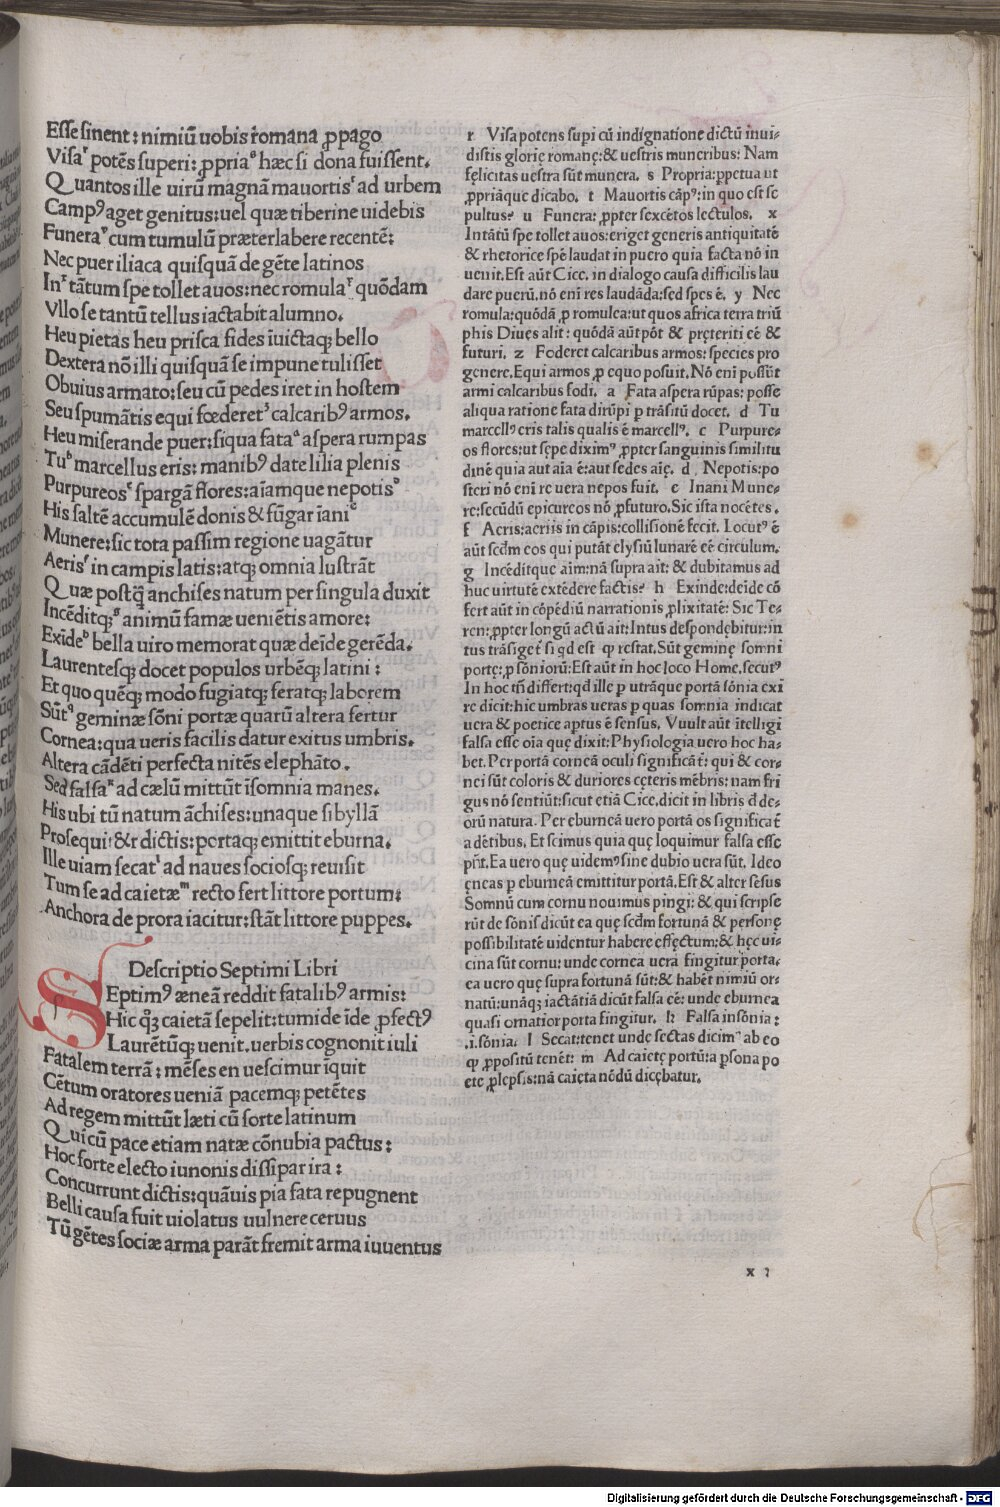 Esse sinent: nimiū uobis romana ꝓpago
Visaʳ potēs superi: ꝓpriaˢ hæc si dona fuissent.
Quantos ille uirū magnā mauortisᵗ ad urbem
Campꝰ aget genitus: uel quæ tiberine uidebis
Funeraᵘ cum tumulū præterlabere recentē:
Nec puer iliaca quisquā de gēte latinos
Inˣ tātum spe tollet auos: nec romulaʸ quōdam
Vllo se tantū tellus iactabit alumno.
Heu pietas heu prisca fides īuictaqꝫ bello
Dextera nō illi quisquā se impune tulisset
Obuius armato: seu cū pedes iret in hostem
Seu spumātis equi fœderetᶻ calcaribꝰ armos.
Heu miserande puer: siqua fataᵃ aspera rumpas
Tuᵇ marcellus eris: manibꝰ date lilia plenis
Purpureosᶜ spargā flores: aīamque nepotisᵈ
His saltē accumulē donis & fūgar īaniᵉ
Munere: sic tota passim regione uagātur
Aerisᶠ in campis latis: atqꝫ omnia lustrāt
Quæ postq̄ anchises natum per singula duxit
Incēditqꝫᵍ animū famæ ueniētis amore:
Exīdeʰ bella uiro memorat quæ deīde gerēda.
Laurentesqꝫ docet populos urbēqꝫ latini:
Et quo quēqꝫ modo fugiatqꝫ feratqꝫ laborem
Sūtᵍ geminæ sōni portæ quarū altera fertur
Cornea: qua ueris facilis datur exitus umbris.
Altera cādēti perfecta nitēs elephāto.
Sed falsaʰ ad cælū mittūt īsomnia manes.
His ubi tū natum āchises: unaque sibyllā
Prosequitᵗ & dictis: portaqꝫ emittit eburna.
Ille uiam secatˡ ad naues sociosqꝫ reuisit
Tum se ad caietæᵐ recto fert littore portum:
Anchora de prora iacitur: stāt littore puppes.
Descriptio Septimi Libri
Septimꝰ æneā reddit fatalibꝰ armis:
Hic qꝫ caietā sepelit: tumide īde ꝓfectꝰ
Laurētūqꝫ uenit. uerbis cognouit iuli
Fatalem terrā: mēses en uescimur īquit
Cētum oratores ueniā pacemqꝫ petētes
Ad regem mittūt læti cū sorte latinum
Qui cū pace etiam natæ cōnubia pactus:
Hoc forte electo iunonis dissipar ira:
Concurrunt dictis: quāuis pia fata repugnent
Belli causa fuit uiolatus uulnere ceruus
Tū gētes sociæ arma parāt fremit arma iuuentus
r Visa potens supi cū indignatione dictū inui-
distis glorię romanę: & uestris muneribus: Nam
fęlicitas uestra sūt munera. s Propria: ꝑpetua ut
ꝓpriāque dicabo. t Mauortis cāpꝰ: in quo est se
pultus? u Funera: ꝓpter sexcētos lectulos. x
In tātū spe tollet auos: eriget generis antiquitatē
& rhetorice spē laudat in puero quia facta nō in
uenit. Est aūt Cice. in dialogo causa difficilis lau
dare puerū. nō enī res laudāda: sed spes ē. y Nec
romula: quōdā ꝓ romulea: ut quos africa terra triū
phis Diues alit: quōdā aūt pōt & pręteriti eē &
futuri. z Foderet calcaribus armos: species pro
genere. Equi armos ꝓ equo posuit. Nō enī possūt
armi calcaribus fodi. a Fata aspera rūpas: posse
aliqua ratione fata dirūpi ꝑ trāsitū docet. d Tu
marcellꝰ eris talis qualis ē marcellꝰ. c Purpure-
os flores: ut sępe diximꝰ ꝓpter sanguinis similitu
dinē quia aut aīa ē: aut sedes aīę. d Nepotis: po
steri nō enī re uera nepos fuit. e Inani Mune-
re: secūdū epicureos nō ꝓfuturo. Sic ista nocētes.
f Aeris: aeriis in cāpis: collisionē fecit. Locutꝰ ē
aūt scdm eos qui putāt elysiū lunarē eē circulum.
g Incēditque aim: nā supra ait: & dubitamus ad
huc uirtutē extēdere factis? h Exinde: deīde cō
fert aūt in cōpēdiū narrationis ꝓlixitatē: Sic Te-
ren: ꝓpter longū actū ait: Intus despondębitur: in
tus trāsiget si qd est qꝫ restat. Sūt geminę somni
portę: ꝑ sōniorū: Est aūt in hoc loco Home. secutꝰ
In hoc tn̄ differt: qd ille ꝑ utrāque portā sōnia exi
re dicit: hic umbras ueras ꝑ quas somnia indicat
uera & poetice aptus ē sensus. Vult aūt ītelligi
falsa esse oīa quę dixit: Physiologia uero hoc ha-
bet. Per portā corneā oculi significāt: qui & cor-
nei sūt coloris & duriores cęteris mēbris: nam fri
gus nō sentiūt: sicut etiā Cice. dicit in libris d̄ de-
orū natura. Per eburneā uero portā os significat
a dētibus. Et scimus quia quę loquimur falsa esse
pn̄t. Ea uero quę uidemꝰ sine dubio uera sūt. Ideo
ęneas ꝑ eburneā emittitur portā. Est & alter sēsus
Somnū cum cornu nouimus pingi: & qui scripse
rūt de sōnis dicūt ea quę scdm fortunā & personę
possibilitatē uidentur habere effęctum: & hęc ui-
cina sūt cornu: unde cornea uera fingitur porta.
ea uero quę supra fortunā sūt: & habēt nimiū or-
natū: unāqꝫ iactātiā dicūt falsa cē: unde eburnea
quasi ornatior porta fingitur. h Falsa insōnia:
.i. sōnia. l Secat: tenet unde sectas dicimꝰ ab eo
qꝫ ꝓpositū tenēt: m Ad caietę portū: a ꝑsona po
etę ꝓlepsis: nā caieta nōdū dicębatur.
x 2
Digitalisierung gefördert durch die Deutsche Forschungsgemeinschaft - DFG